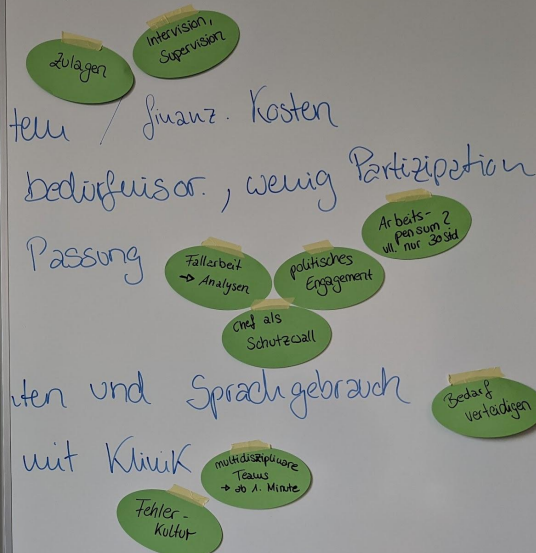 Zulagen
Intervision,
Supervision
/ finanz. Kosten
bedürfnisor., wenig Partizipation
Arbeits-
pensum?
vll. nur 30 Std
Passung
Fallarbeit
→ Analysen
politisches
Engagement
Chef als
Schutzwall
und Sprachgebrauch
Bedarf
verteidigen
mit Klinik
multidisziplinäre
Teams
→ ab 1. Minute
Fehler-
Kultur